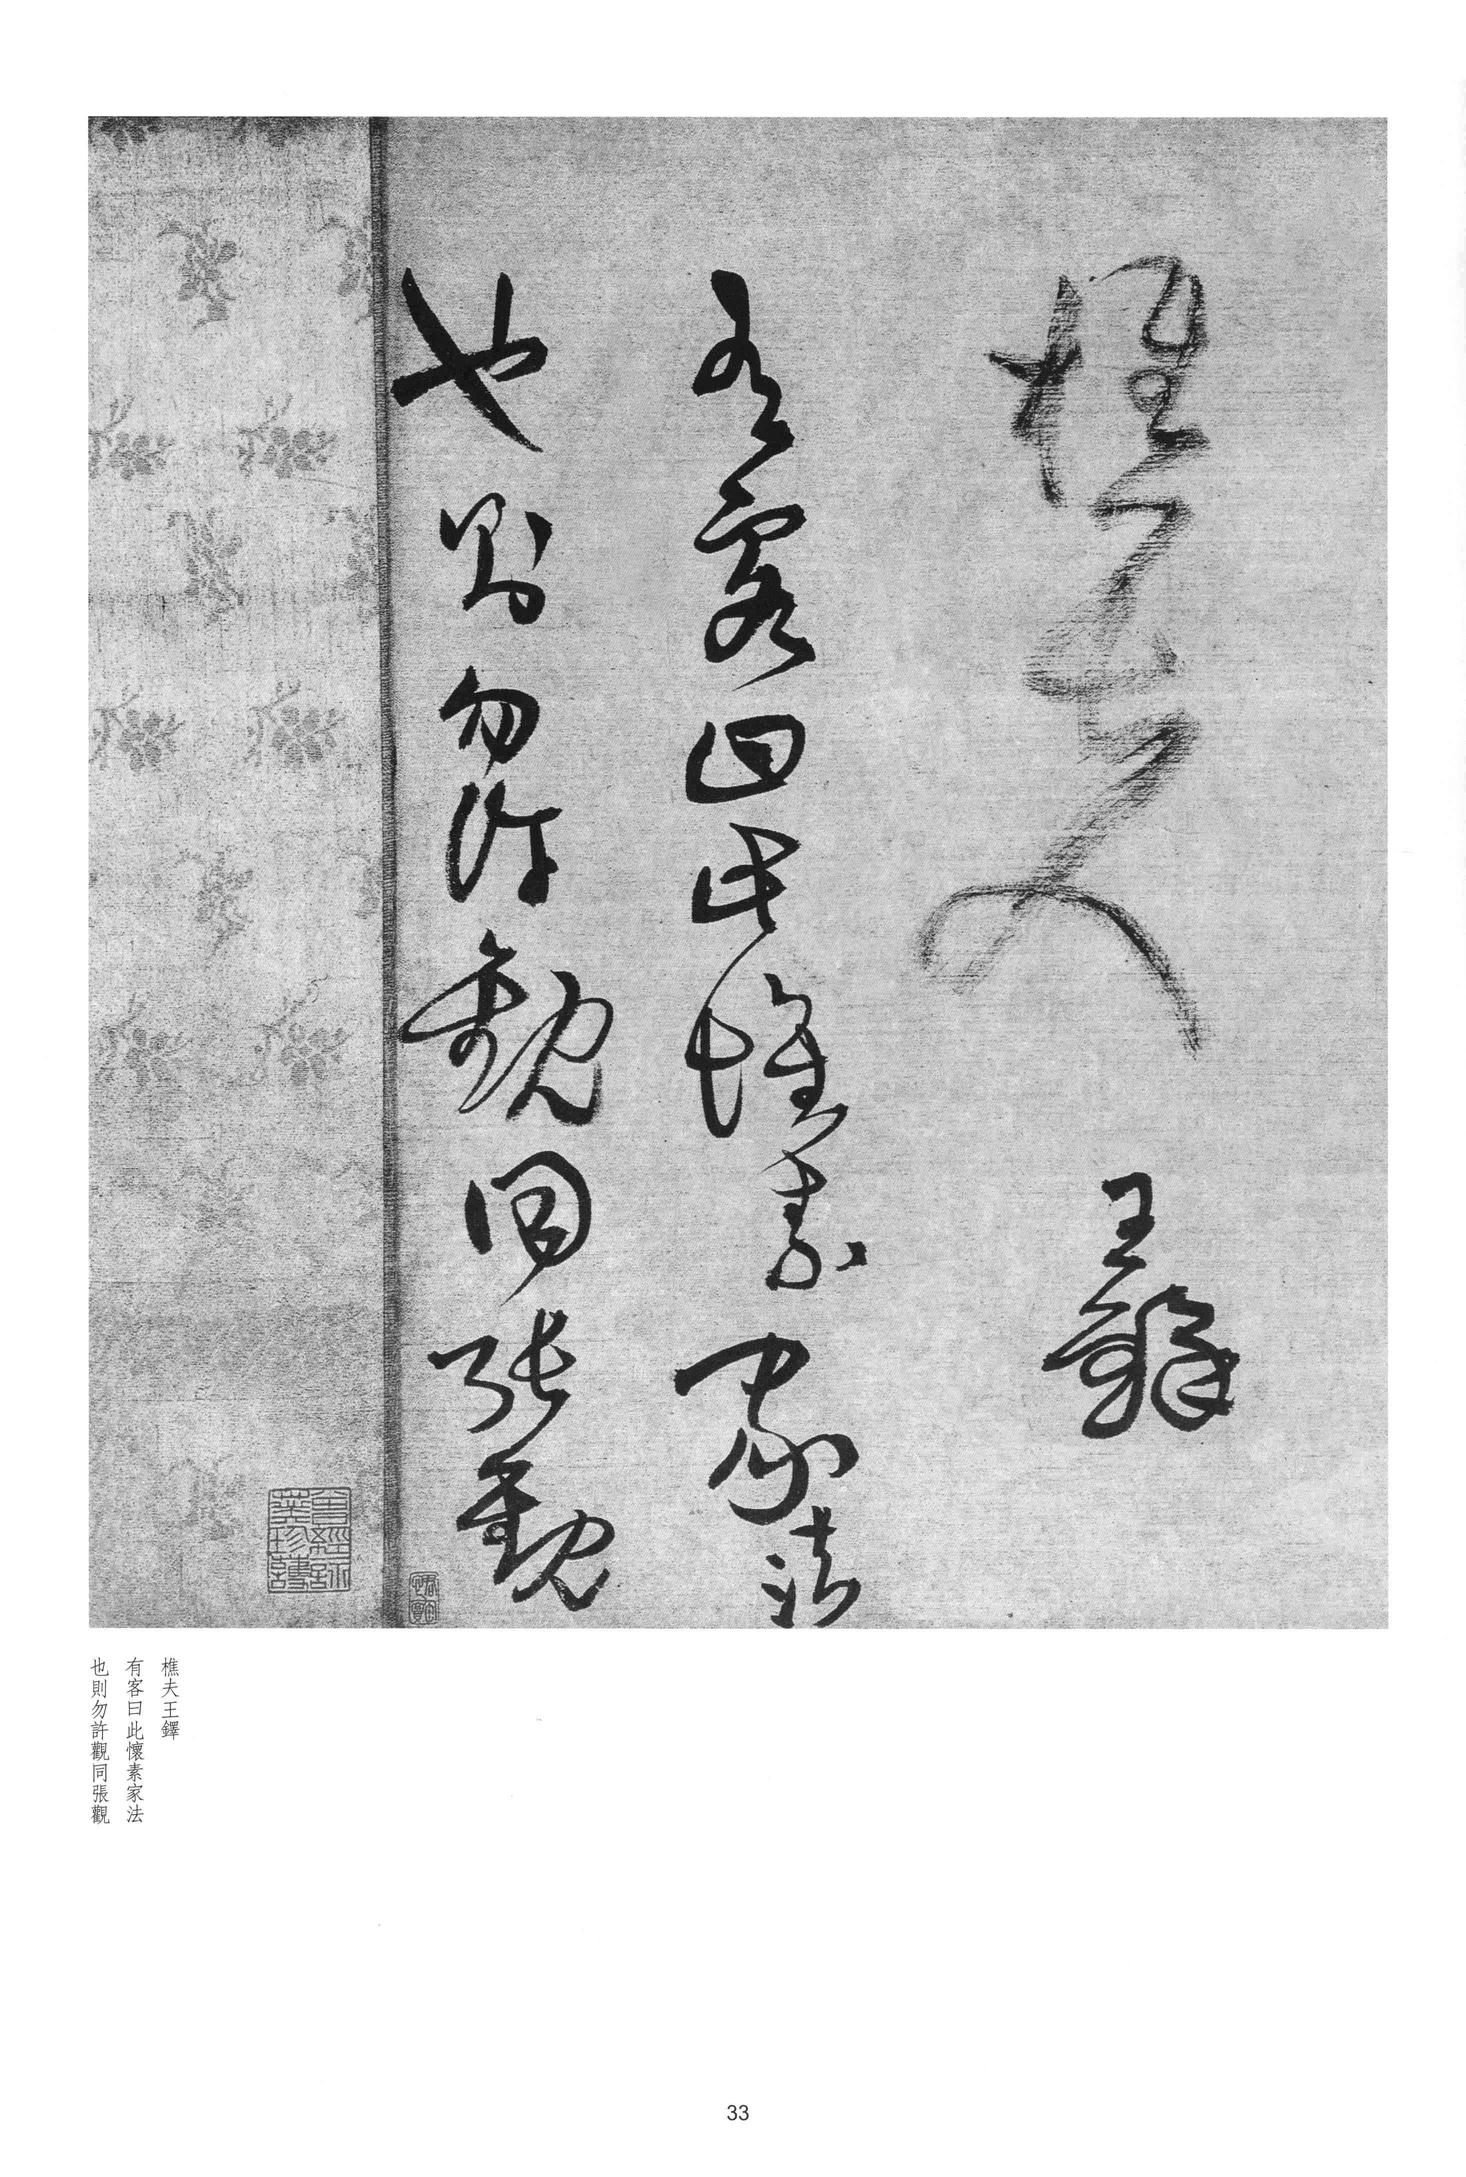 樵夫王鐸
有客曰此懷素家法
也則勿許觀同張觀
曾經詠
莪珍護
樵夫王鐸
有客曰此懷素家法
也則勿許觀同張觀
33